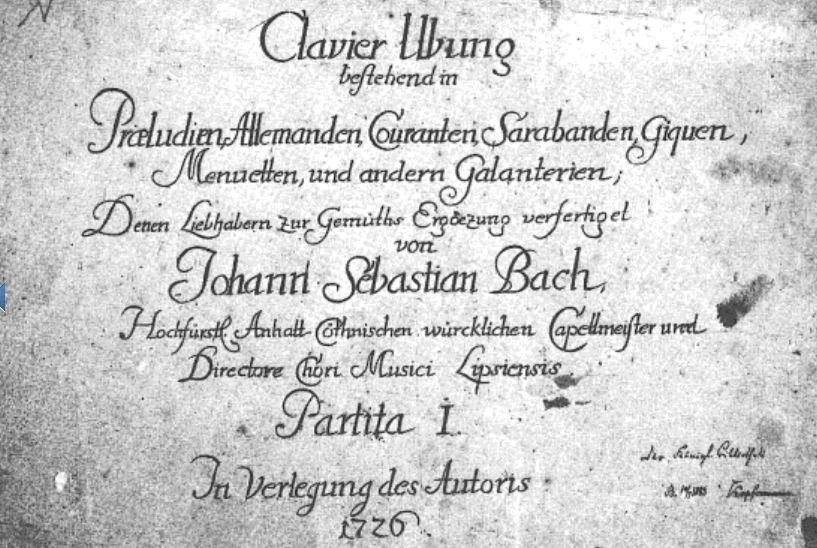 Clavier Ubung
bestehend in
Præludien, Allemanden, Couranten, Sarabanden, Giquen,
Menuetten, und andern Galanterien;
Denen Liebhabern zur Gemüths Ergoezung verfertiget
von
Johann Sebastian Bach,
Hochfürstl. Anhalt-Cöthnischen würcklichen Capellmeister und
Directore Chori Musici Lipsiensis.
Partita I.
In Verlegung des Autoris
1726.
Der Königl.